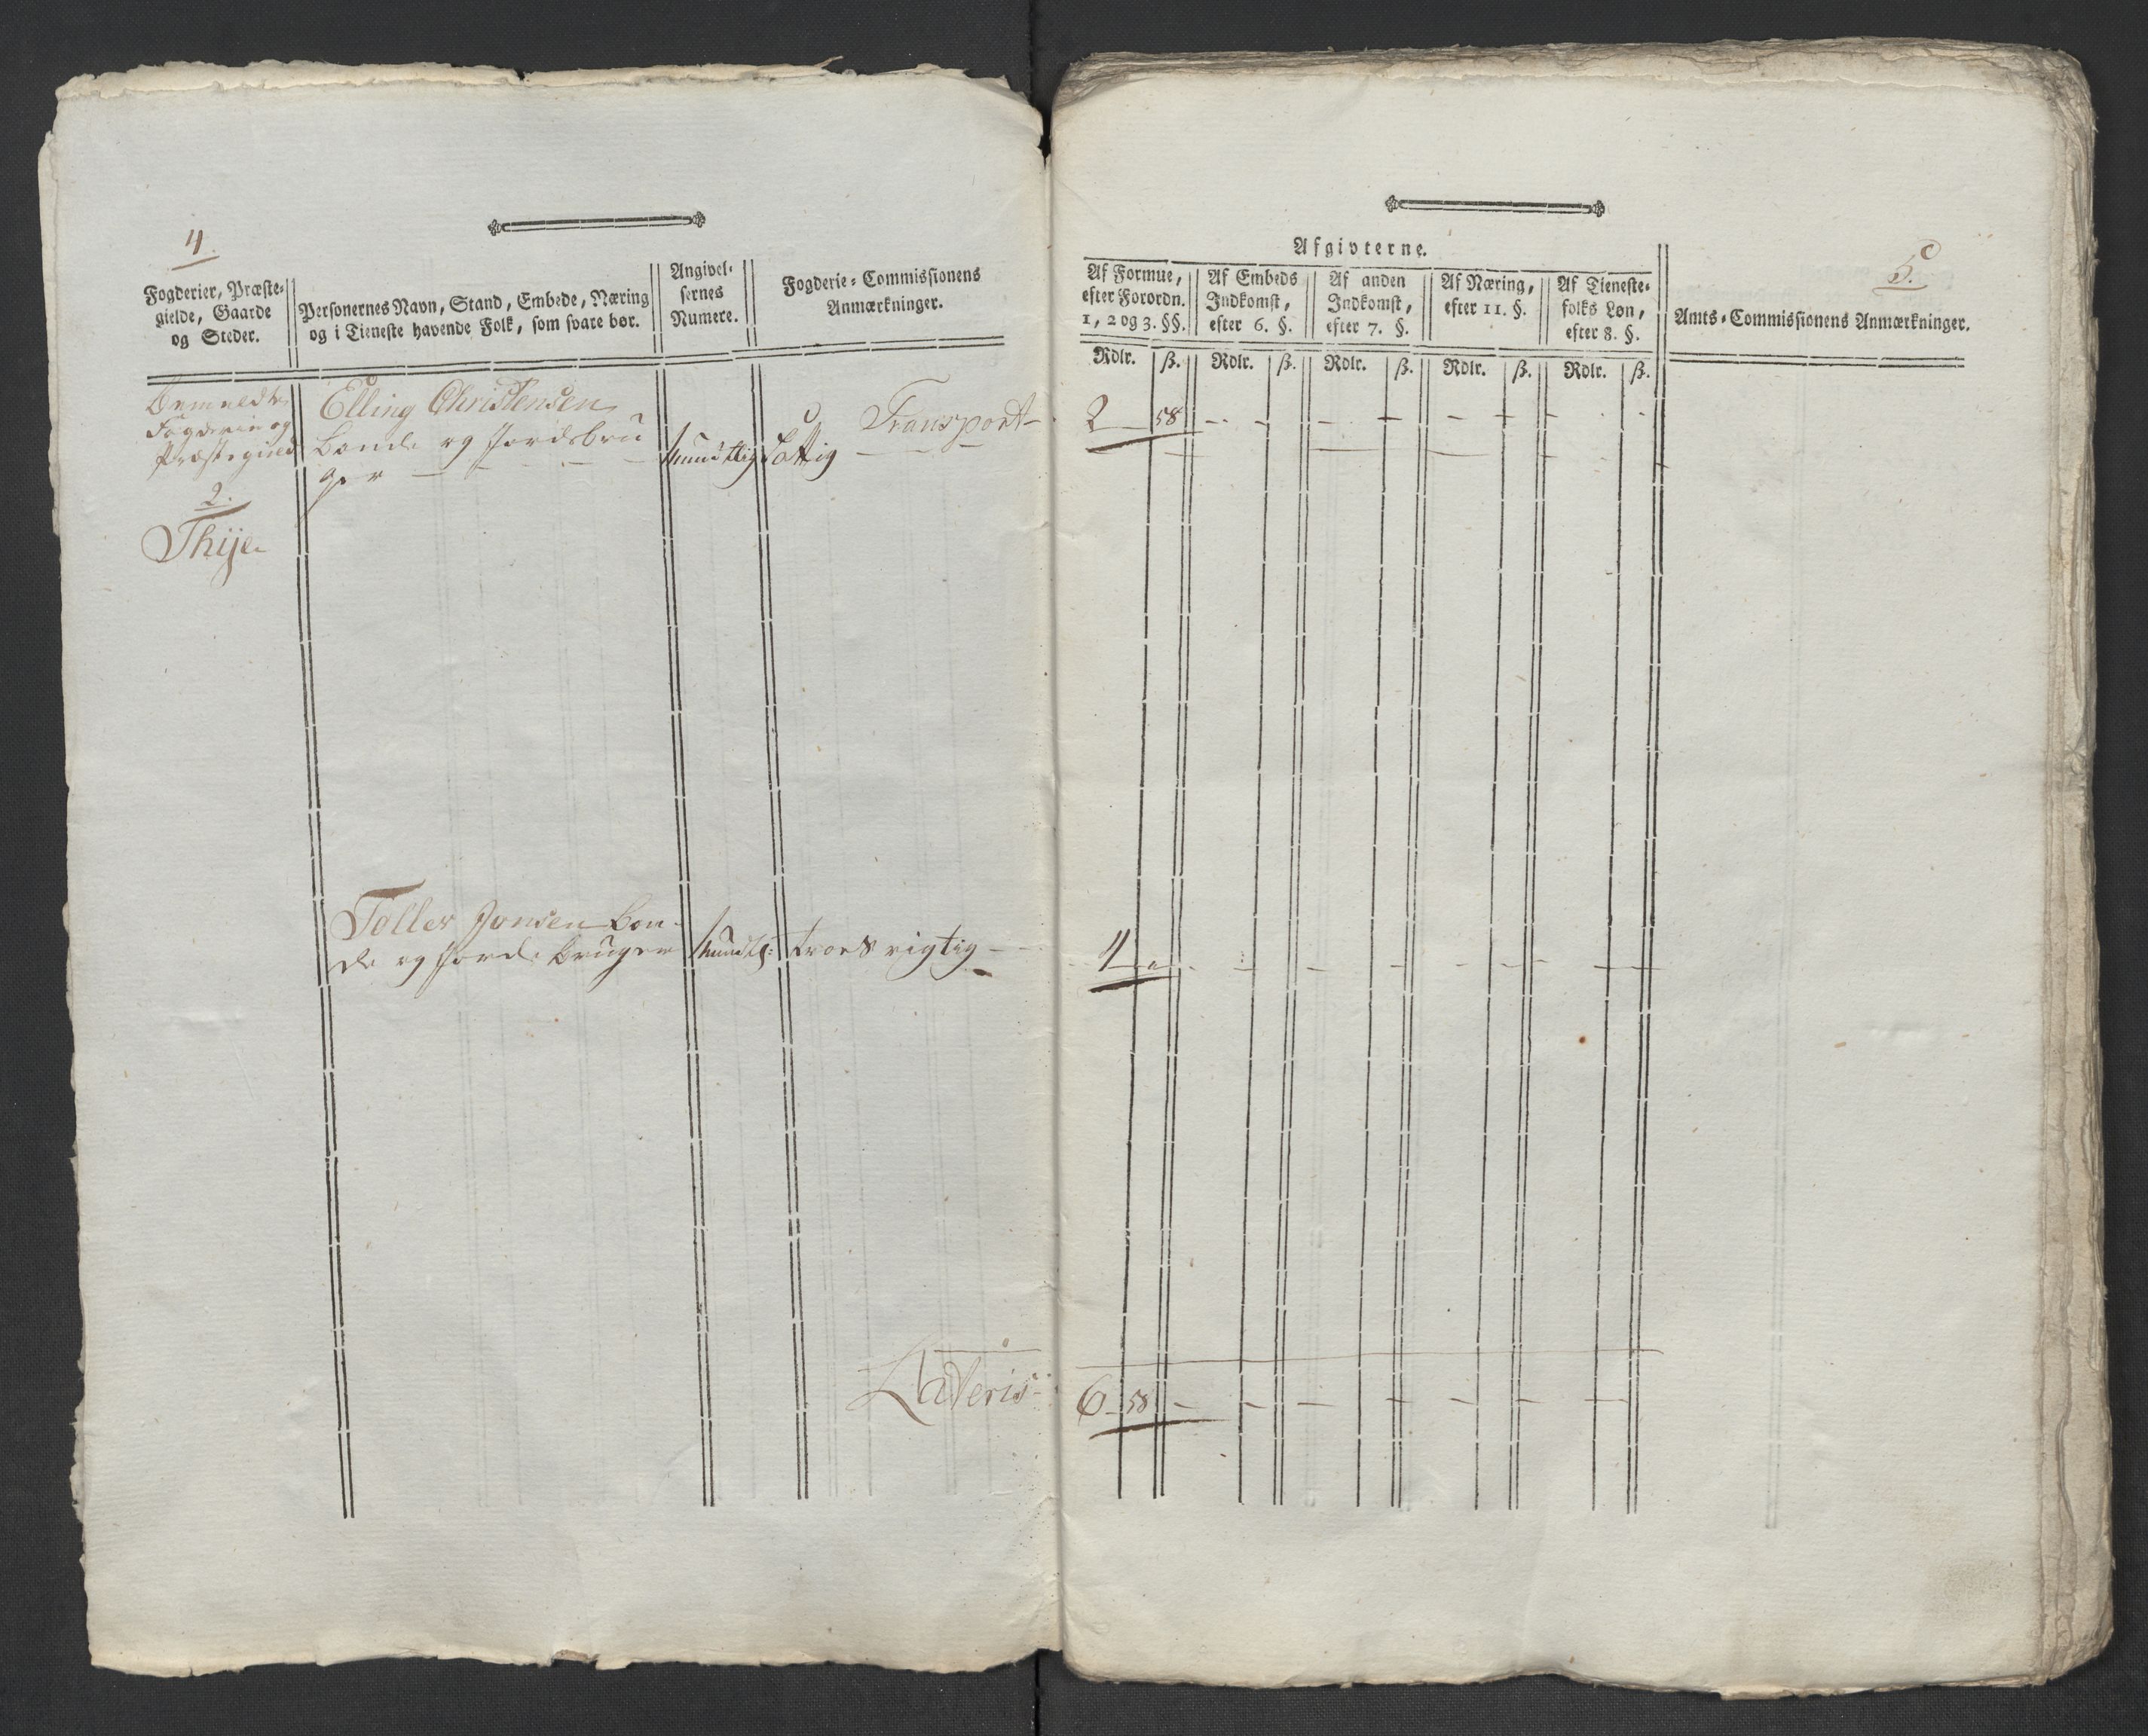 4
Fogderier, Præste-
gielde, Gaarde
og Steder.
Personernes Navn, Stand, Embede, Næring
og i Tieneste havende Folk, som svare bør.
Angivel-
sernes
Numere.
Fogderie-Commissionens
Anmærkninger.
Bemeldte
Fogderie og
Præstegield
2.
Thije
Elling Christensen
bonde og Jordsbru
ger
Mundtlig
fattig
Transport
Toller Jonsen bon-
de og Jordbruger
Mundtl:
troes rigtig
Lateris
5.
Afgivterne.
Af Formue,
efter Forordn.
1, 2 og 3. §§.
Af Embeds
Indkomst,
efter 6. §.
Af anden
Indkomst,
efter 7. §.
Af Næring,
efter 11. §.
Af Tieneste-
folks Løn,
efter 8. §.
Amts-Commissionens Anmærkninger.
Rdlr. ß. Rdlr. ß. Rdlr. ß. Rdlr. ß. Rdlr. ß.
2 58 - - - - - - - -
4 - - - - - - - - -
6 58 - - - - - - - -